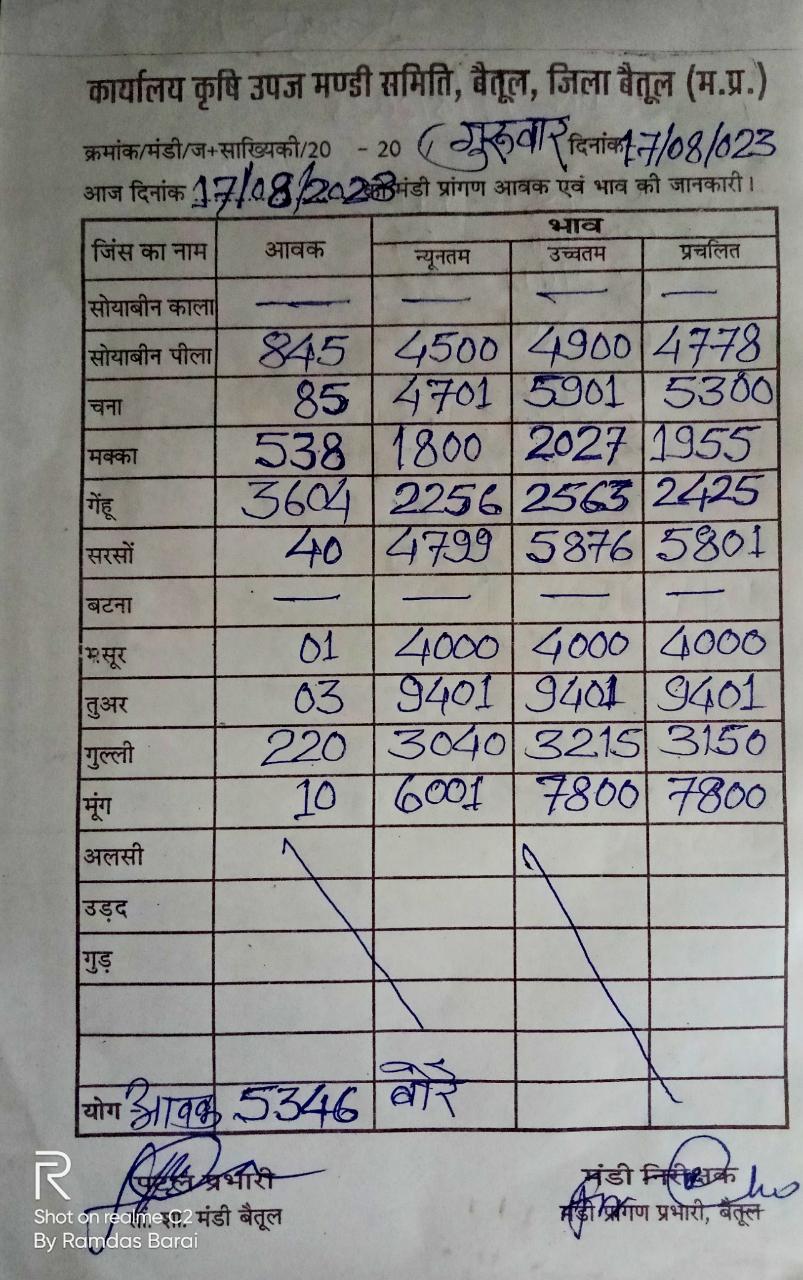 कार्यालय कृषि उपज मण्डी समिति, बैतूल, जिला बैतूल (म.प्र.)
क्रमांक/मंडी/ज+साख्यिकी/20 - 20 (गुरूवार दिनांक 17/08/023
आज दिनांक 17/08/2023 मंडी प्रांगण आवक एवं भाव की जानकारी।
जिंस का नाम आवक भाव
न्यूनतम उच्चतम प्रचलित
सोयाबीन काला — — — —
सोयाबीन पीला 845 4500 4900 4778
चना 85 4701 5901 5300
मक्का 538 1800 2027 1955
गेंहू 3604 2256 2563 2425
सरसों 40 4799 5876 5801
बटना — — — —
मसूर 01 4000 4000 4000
तुअर 03 9401 9401 9401
गुल्ली 220 3040 3215 3150
मूंग 10 6001 7800 7800
अलसी
उड़द
गुड़
योग आवक 5346 बोरे
प्रभारी मंडी निरीक्षक
सां. शा. मंडी बैतूल मंडी प्रांगण प्रभारी, बैतूल
R
Shot on realme C2
By Ramdas Barai